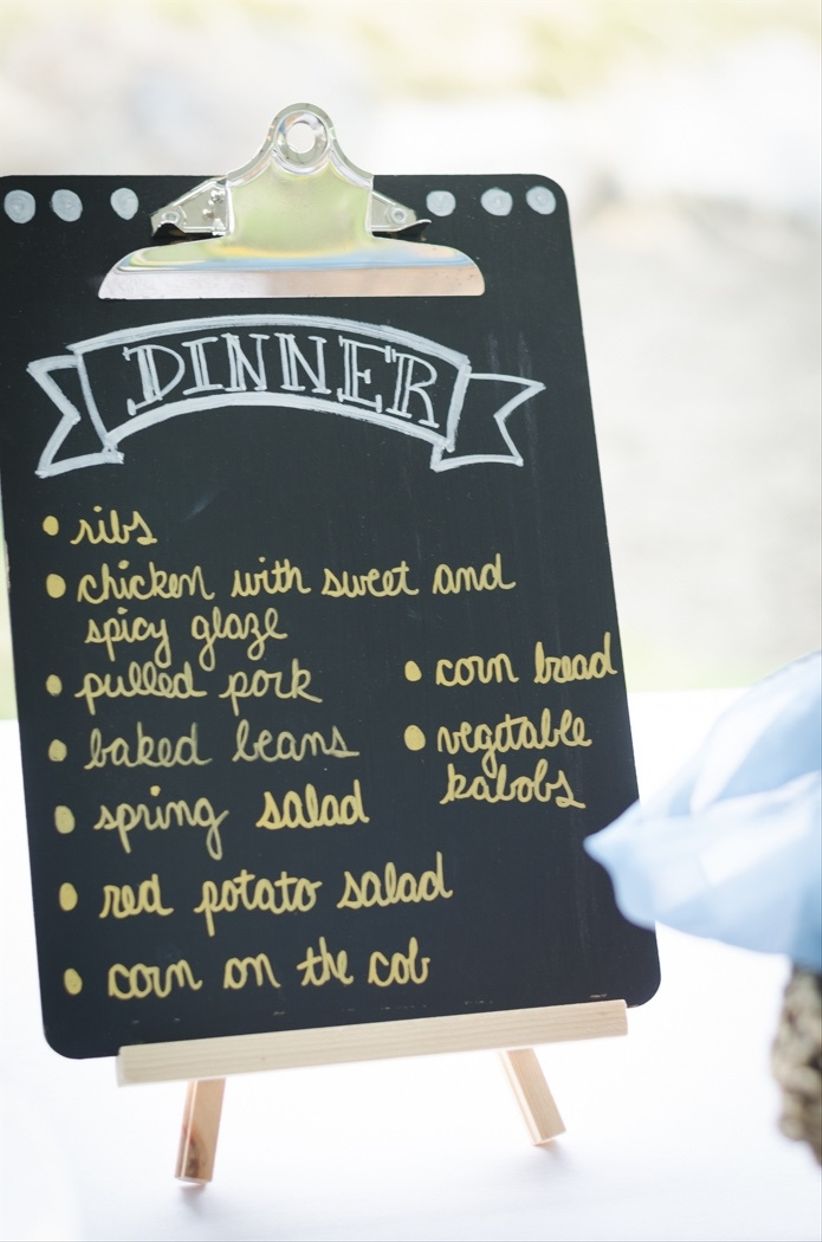 DINNER
• ribs
• chicken with sweet and
spicy glaze
• pulled pork
• baked beans
• spring salad
• red potato salad
• corn on the cob
• corn bread
• vegetable
kabobs